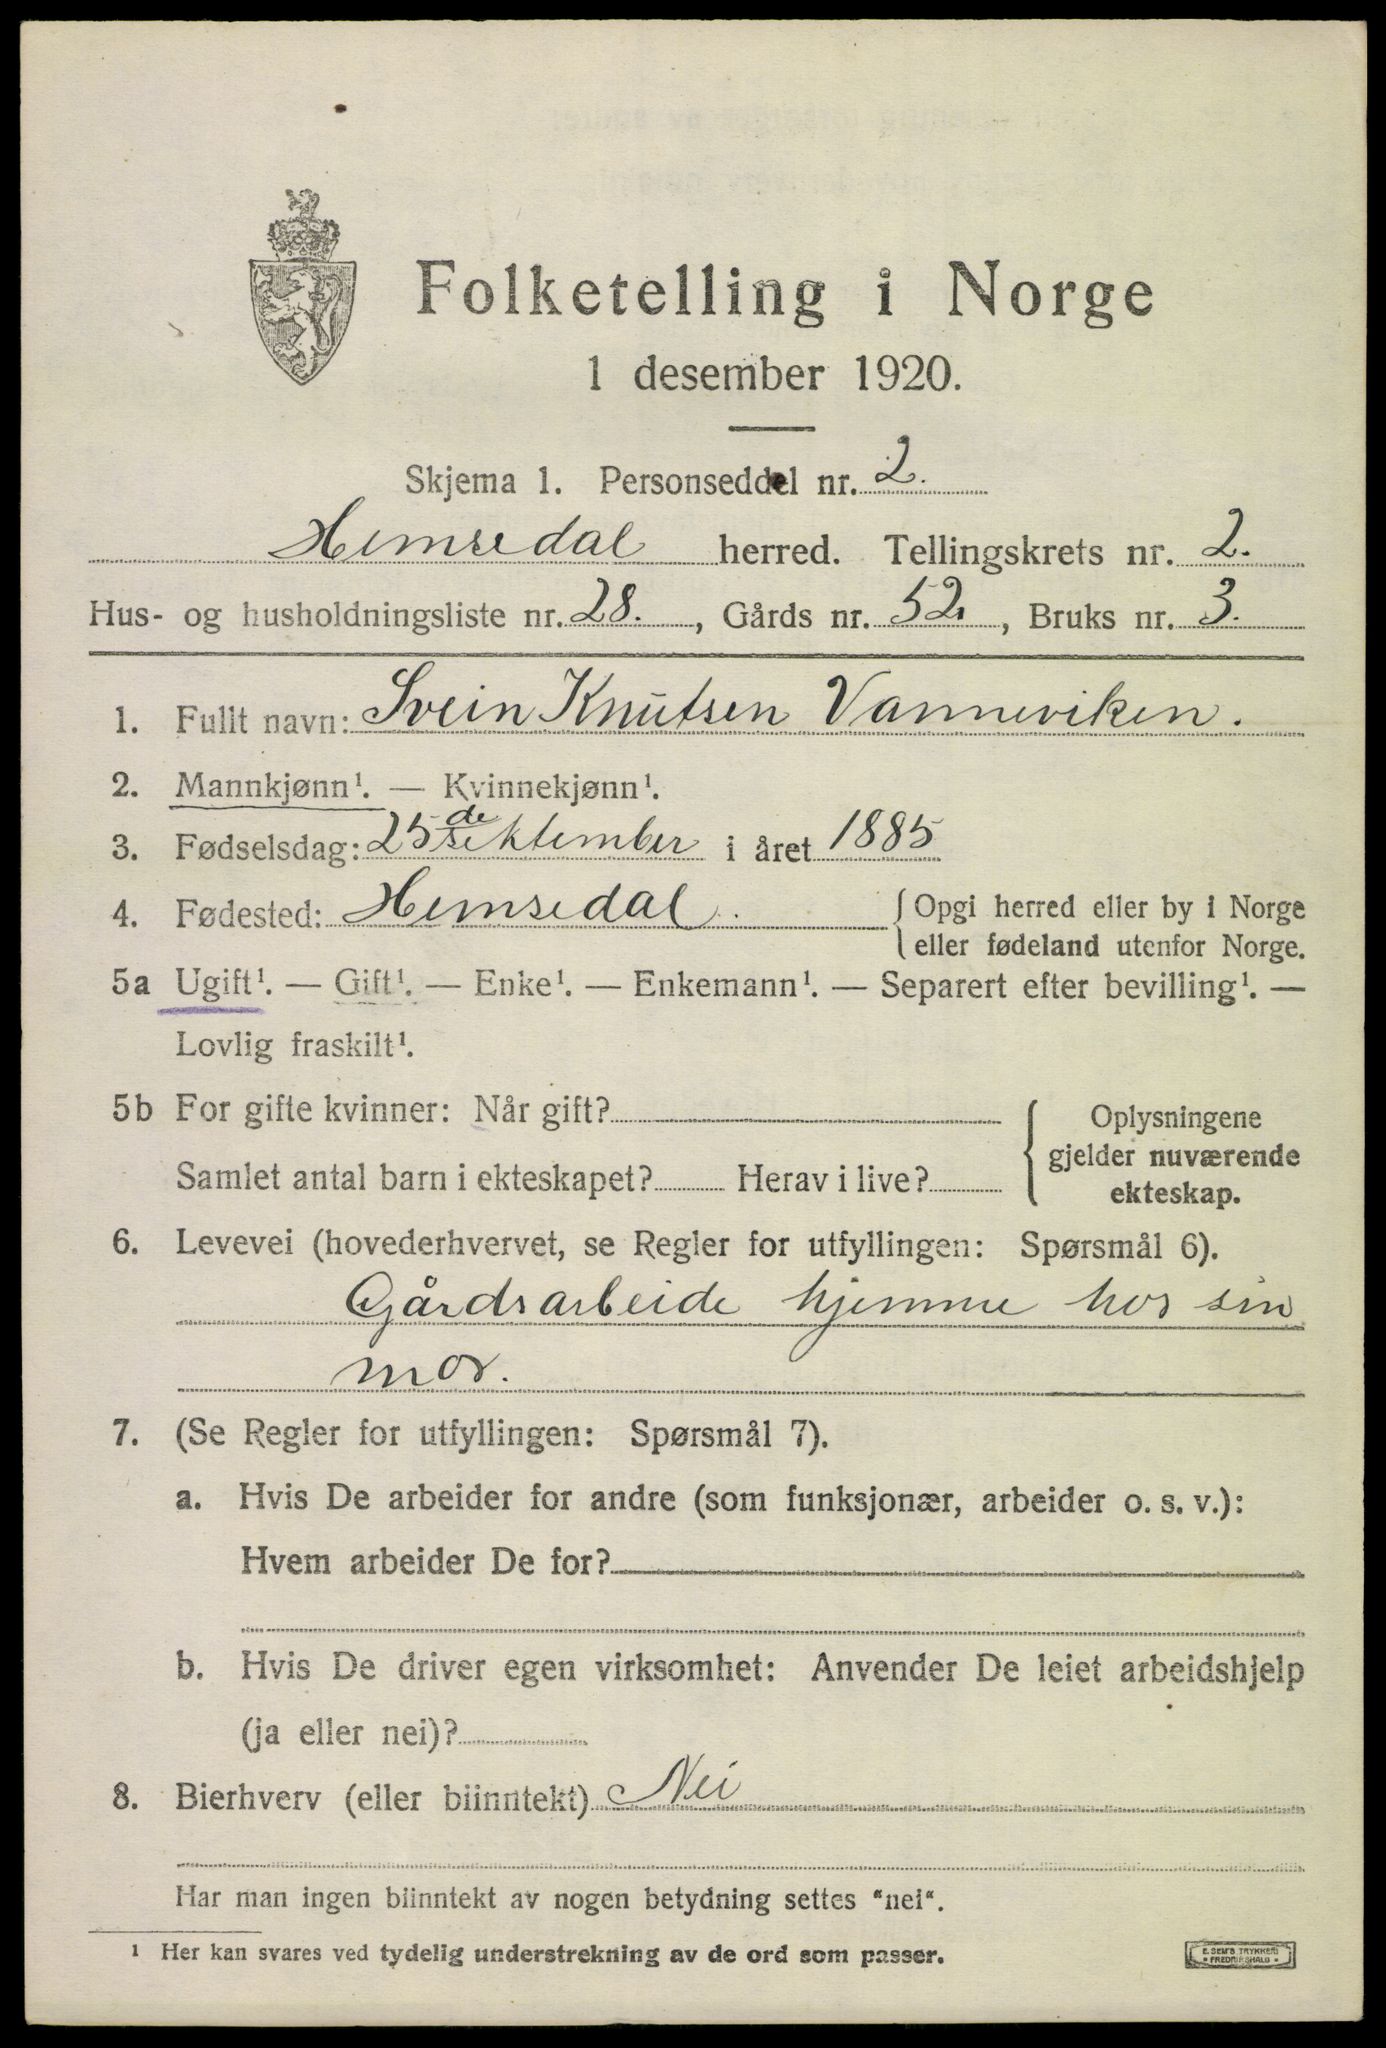 Folketelling i Norge
1 desember 1920.
Skjema 1. Personseddel nr. 2.
Hemsedal herred. Tellingskrets nr. 2.
Hus- og husholdningsliste nr. 28., Gårds nr. 52, Bruks nr. 3.
1. Fullt navn: Svein Knutsen Vanneviken.
2. Mannkjønn¹. — Kvinnekjønn¹.
3. Fødselsdag: 25de sektember i året 1885
4. Fødested: Hemsedal. { Opgi herred eller by i Norge
eller fødeland utenfor Norge.
5a Ugift¹. — Gift¹. — Enke¹. — Enkemann¹. — Separert efter bevilling¹. —
Lovlig fraskilt¹.
5b For gifte kvinner: Når gift? { Oplysningene
gjelder nuværende
Samlet antal barn i ekteskapet? Herav i live? ekteskap.
6. Levevei (hovederhvervet, se Regler for utfyllingen: Spørsmål 6).
Gårdsarbeide hjemme hos sin
mor.
7. (Se Regler for utfyllingen: Spørsmål 7).
a. Hvis De arbeider for andre (som funksjonær, arbeider o. s. v.):
Hvem arbeider De for?
b. Hvis De driver egen virksomhet: Anvender De leiet arbeidshjelp
(ja eller nei)?
8. Bierhverv (eller biinntekt) Nei
Har man ingen biinntekt av nogen betydning settes "nei".
¹ Her kan svares ved tydelig understrekning av de ord som passer.
E. SEM'S TRYKKERI
• FREDRIKSHALD •